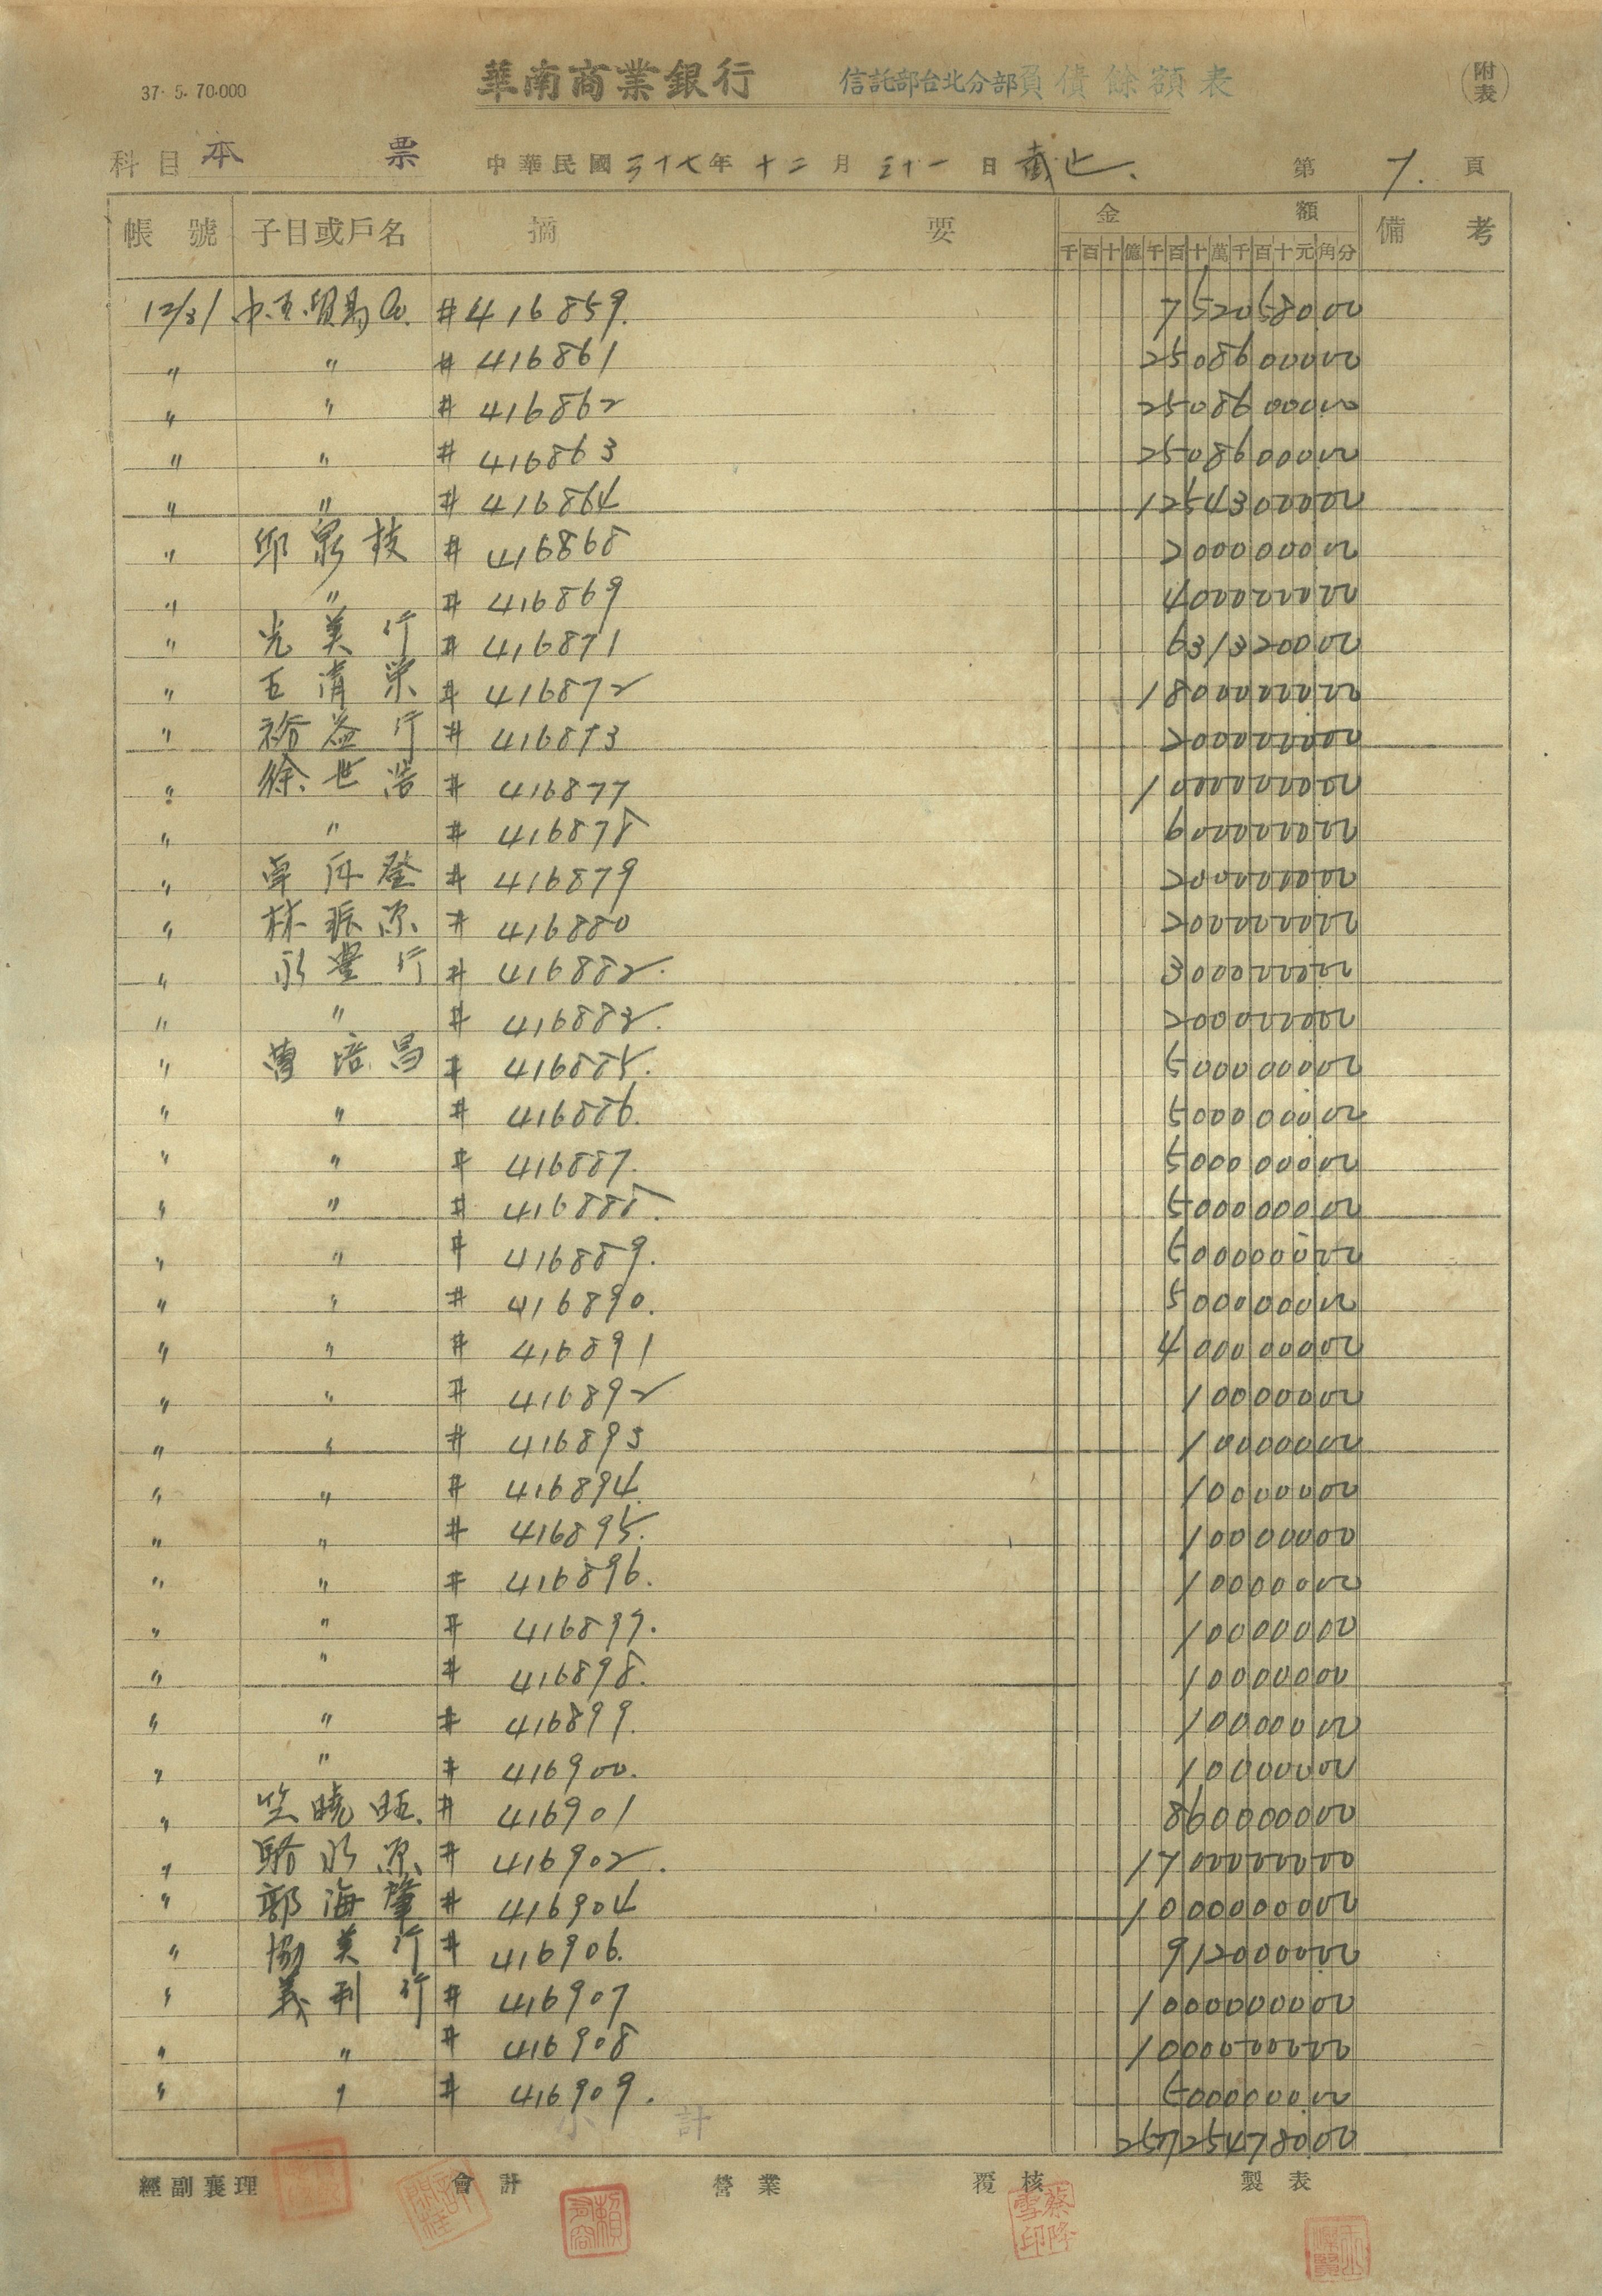 37. 5. 70.000
華南商業銀行 信託部台北分部負債餘額表 (附表)
科目 本票 中華民國三十七年十二月三十一日截止. 第7.頁
帳號 子目或戶名 摘要 金額 備考
千百十億千百十萬千百十元角分
12/31 #416859. 7520580.00
〃 〃 #416861 25086000.00
〃 〃 #416862 25086000.00
〃 〃 #416863 25086000.00
〃 〃 #416864 12543000.00
〃 邱泉枝 #416868 2000000.00
〃 〃 #416869 4000000.00
〃 光美行 #416871 6313200.00
〃 王清榮 #416872 18000000.00
〃 裕益行 #416873 2000000.00
〃 徐世浩 #416877 10000000.00
〃 〃 #416878 6000000.00
〃 #416879 2000000.00
〃 林振源 #416880 2000000.00
〃 永豐行 #416882. 3000000.00
〃 〃 #416883. 2000000.00
〃 培昌 #416885. 5000000.00
〃 〃 #416886. 5000000.00
〃 〃 #416887. 5000000.00
〃 〃 #416888. 5000000.00
〃 〃 #416889. 5000000.00
〃 〃 #416890. 5000000.00
〃 〃 #416891 4000000.00
〃 〃 #416892 100000.00
〃 〃 #416893 100000.00
〃 〃 #416894. 100000.00
〃 〃 #416895. 100000.00
〃 〃 #416896. 100000.00
〃 〃 #416897. 100000.00
〃 〃 #416898. 100000.00
〃 〃 #416899. 100000.00
〃 〃 #416900. 100000.00
〃 #416901 8600000.00
〃 駱水源 #416902. 17000000.00
〃 郭海肇 #416904 10000000.00
〃 協美行 #416906. 9120000.00
〃 義利行 #416907 10000000.00
〃 〃 #416908 10000000.00
〃 〃 #416909. 5000000.00
小計 257254780.00
經副襄理 會計 營業 覆核 製表